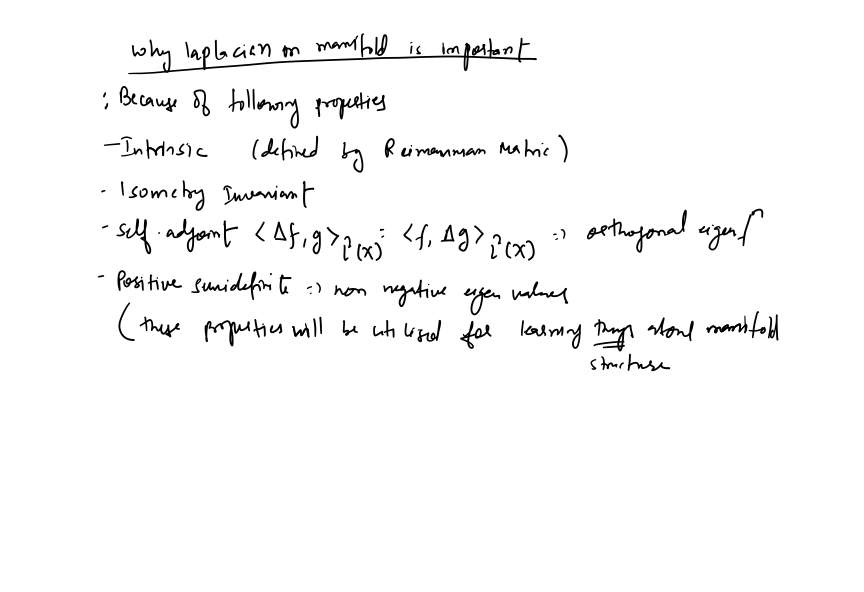 Why laplacien on manifold is important
: Because of following properties
- Intrinsic (defined by Reimannian Matric)
- Isometry Invariant
- Self-adjoint <Δf, g>L²(X) = <f, Δg>L²(X) => orthogonal eigenf
- Positive semidefinite => non negative eigen values
(these properties will be utilized for learning things about manifold
structure